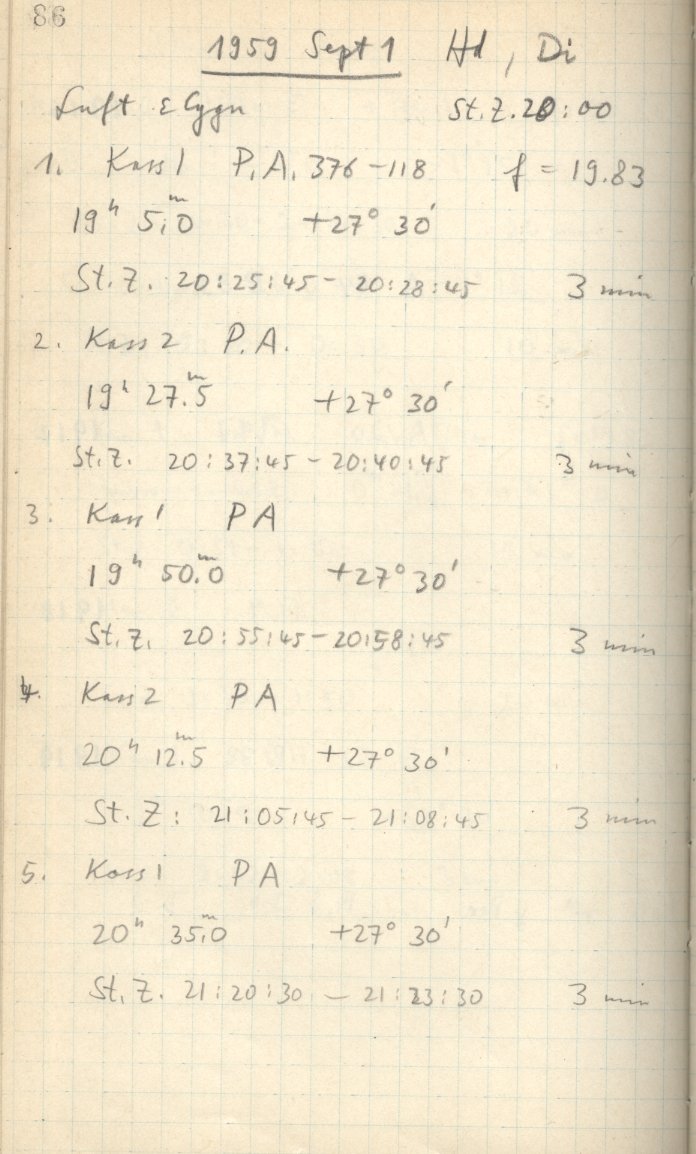 86
1959 Sept 1 Hd, Di
Luft ε Cygn St. Z. 20:00
1. Kass 1 P.A. 376-118 f = 19.83
19ʰ 5.ᵐ0 +27° 30'
St. Z. 20:25:45 - 20:28:45 3 min
2. Kass 2 P.A.
19ʰ 27.ᵐ5 +27° 30'
St. Z. 20:37:45 - 20:40:45 3 min
3. Kass 1 PA
19ʰ 50.ᵐ0 +27° 30'
St. Z. 20:55:45 - 20:58:45 3 min
4. Kass 2 PA
20ʰ 12.ᵐ5 +27° 30'
St. Z: 21:05:45 - 21:08:45 3 min
5. Kass 1 PA
20ʰ 35.ᵐ0 +27° 30'
St. Z. 21:20:30 - 21:23:30 3 min